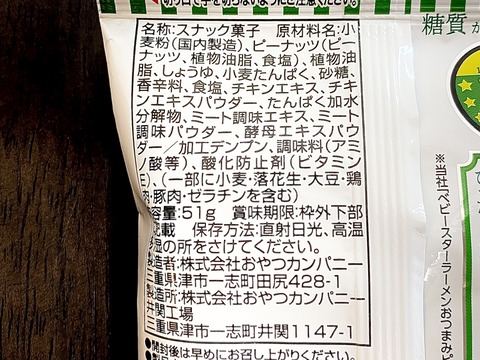 切り口で手を切らないようにご注意ください。
名称:スナック菓子 原材料名:小
麦粉(国内製造)、ピーナッツ(ピ
ーナッツ、植物油脂、食塩)、植物油
脂、しょうゆ、小麦たんぱく、砂糖、
香辛料、食塩、チキンエキス、チキ
ンエキスパウダー、たんぱく加水
分解物、ミート調味エキス、ミート
調味パウダー、酵母エキスパウ
ダー/加工デンプン、調味料(アミ
ノ酸等)、酸化防止剤(ビタミン
E)、(一部に小麦・落花生・大豆・鶏
肉・豚肉・ゼラチンを含む)
内容量:51g 賞味期限:枠外下部
記載 保存方法:直射日光、高温
多湿の所をさけてください。
製造者:株式会社おやつカンパニー
三重県津市一志町田尻428-1
製造所:株式会社おやつカンパニー
井関工場
三重県津市一志町井関1147-1
●開封後は早めにお召し上がりください。
糖質
※当社「ベビースターラーメンおつまみ